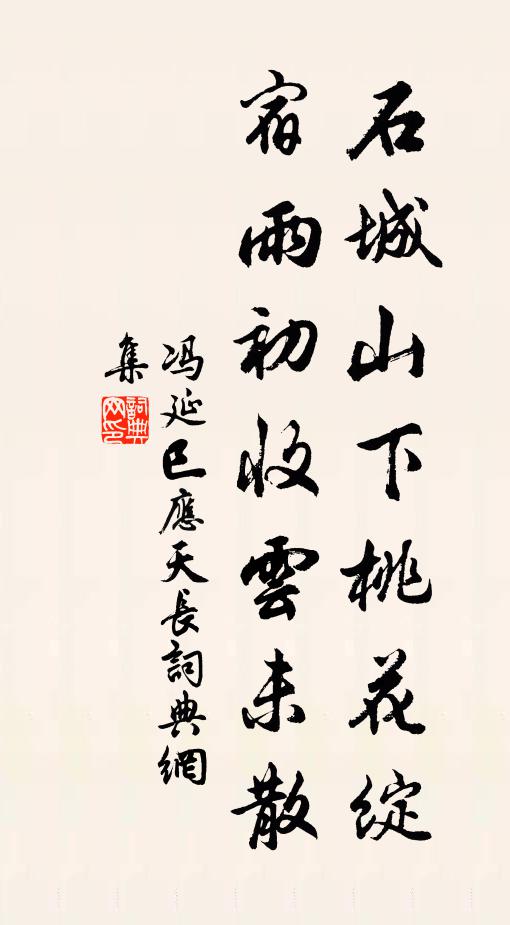 石城山下桃花綻
宿雨初收雲未散
冯延巳應天長詞典網
集
詞典網印